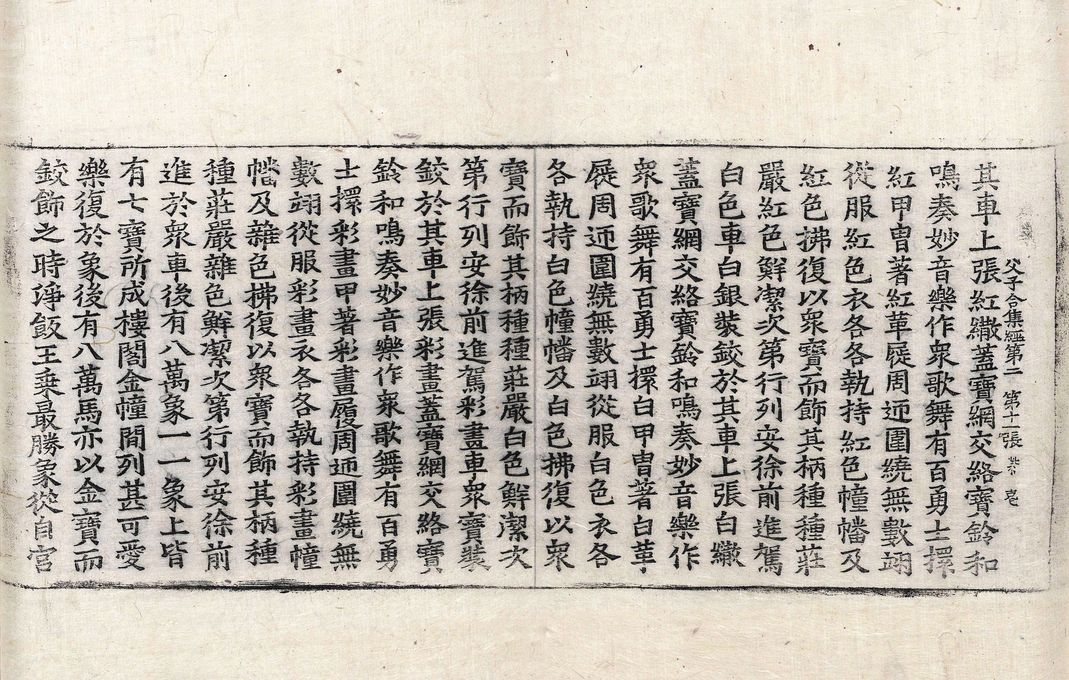 父子合集經第二　第十張
其車上張紅繖蓋寶網交絡寶鈴和
鳴奏妙音樂作衆歌舞有百勇士擐
紅甲冑著紅革屣周迊圍繞無數翊
從服紅色衣各各執持紅色幢幡及
紅色拂復以衆寶而飾其柄種種莊
嚴紅色鮮潔次第行列安徐前進駕
白色車白銀裝鉸於其車上張白繖
蓋寶網交絡寶鈴和鳴奏妙音樂作
衆歌舞有百勇士擐白甲冑著白革
屣周迊圍繞無數翊從服白色衣各
各執持白色幢幡及白色拂復以衆
寶而飾其柄種種莊嚴白色鮮潔次
第行列安徐前進駕彩畫車衆寶裝
鉸於其車上張彩畫蓋寶網交絡寶
鈴和鳴奏妙音樂作衆歌舞有百勇
士擐彩畫甲著彩畫履周迊圍繞無
數翊從服彩畫衣各各執持彩畫幢
幡及雜色拂復以衆寶而飾其柄種
種莊嚴雜色鮮潔次第行列安徐前
進於衆車後有八萬象一一象上皆
有七寶所成樓閣金幢間列甚可愛
樂復於象後有八萬馬亦以金寶而
鉸飾之時淨飯王乘最勝象從自宮